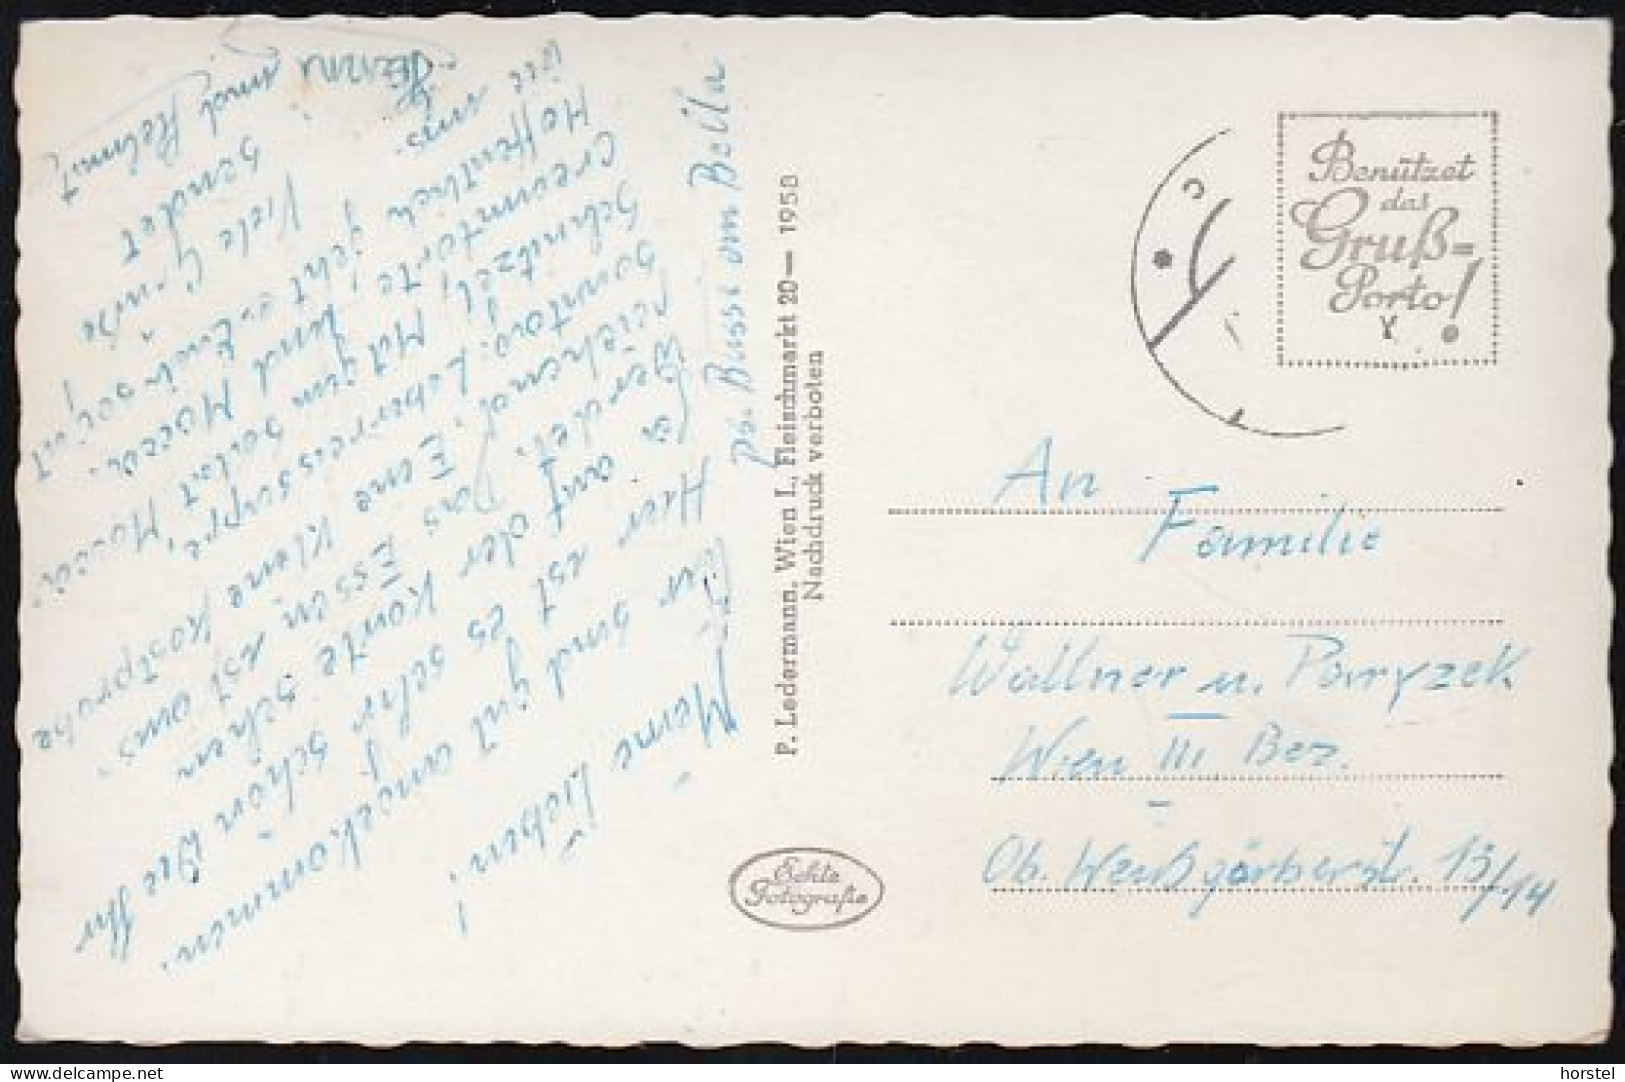 Meine Lieben!
Wir sind gut angekommen.
Hier ist es sehr schön Wie Ihr
ja auf der Karte sehen
werdet. Das Essen ist aus-
reichend. Eine kleine Kostprobe
Sonntag: Leberreissuppe,
Schnitzel, Salat
Cremetorte und Mocca.
Hoffentlich geht es Euch so gut
wie uns.
Viele Grüße
sendet
Hanni
und Helmut
Benützet
das
Gruß=
Porto!
P. Ledermann, Wien I., Fleischmarkt 20— 1958
Nachdruck verboten
Echte
Fotografie
An
Familie
Wallner u. Paryzek
Wien III Bez.
Ob. Weißgärberstr. 13/14
horstel